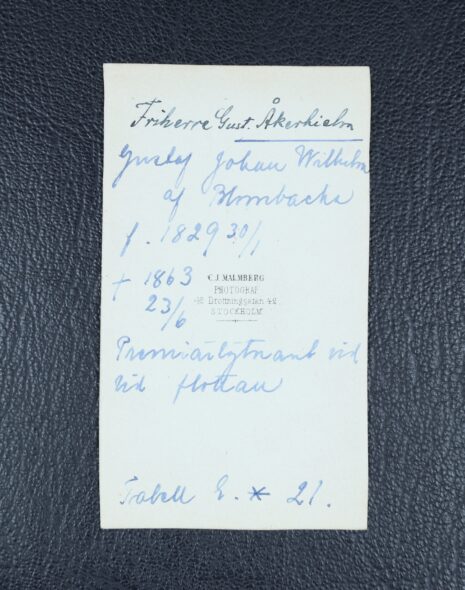 Friherre Gust. Åkerhielm
Gustaf Johan Wilhelm
af Blombacka
f. 1829 30/1
+ 1863
23/6
C J MALMBERG
PHOTOGRAF
42 Drottninggatan 42.
STOCKHOLM
Premiärlöjtnant vid
vid flottan
Tabell E. * 21.